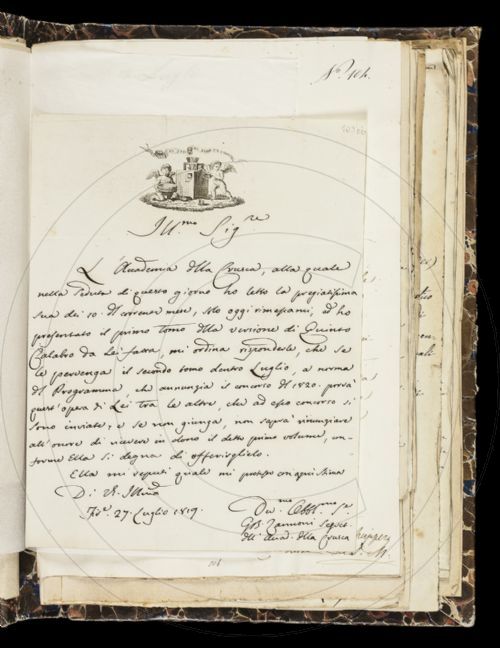 N.° 104.
Ill.mo Sig.re
L'Accademia della Crusca, alla quale
nella seduta di questo giorno ho letto la pregiatissima
sua dei 10. del corrente mese, oggi rimessami, ed ho
presentato il primo tomo della versione di Quinto
Calabro da Lei fatta, mi ordina risponderle, che se
le pervenga il secondo tomo dentro Luglio, a norma
del Programma, che annunzia il concorso del 1820. porrà
quest'opera di Lei tra le altre, che ad esso concorso si
sono inviate; e se non giunga, non saprà rinunziare
all'onore di ricevere in dono il detto primo volume, con-
forme Ella si degna di offerirglielo.
Ella mi reputi quale mi protesto con ogni stima
Di V. S. Ill.ma
Fir.e 27. Luglio 1819.
Dev.mo Obbl.mo Se
GB. Zannoni Segret.
dell'Accad. della Crusca